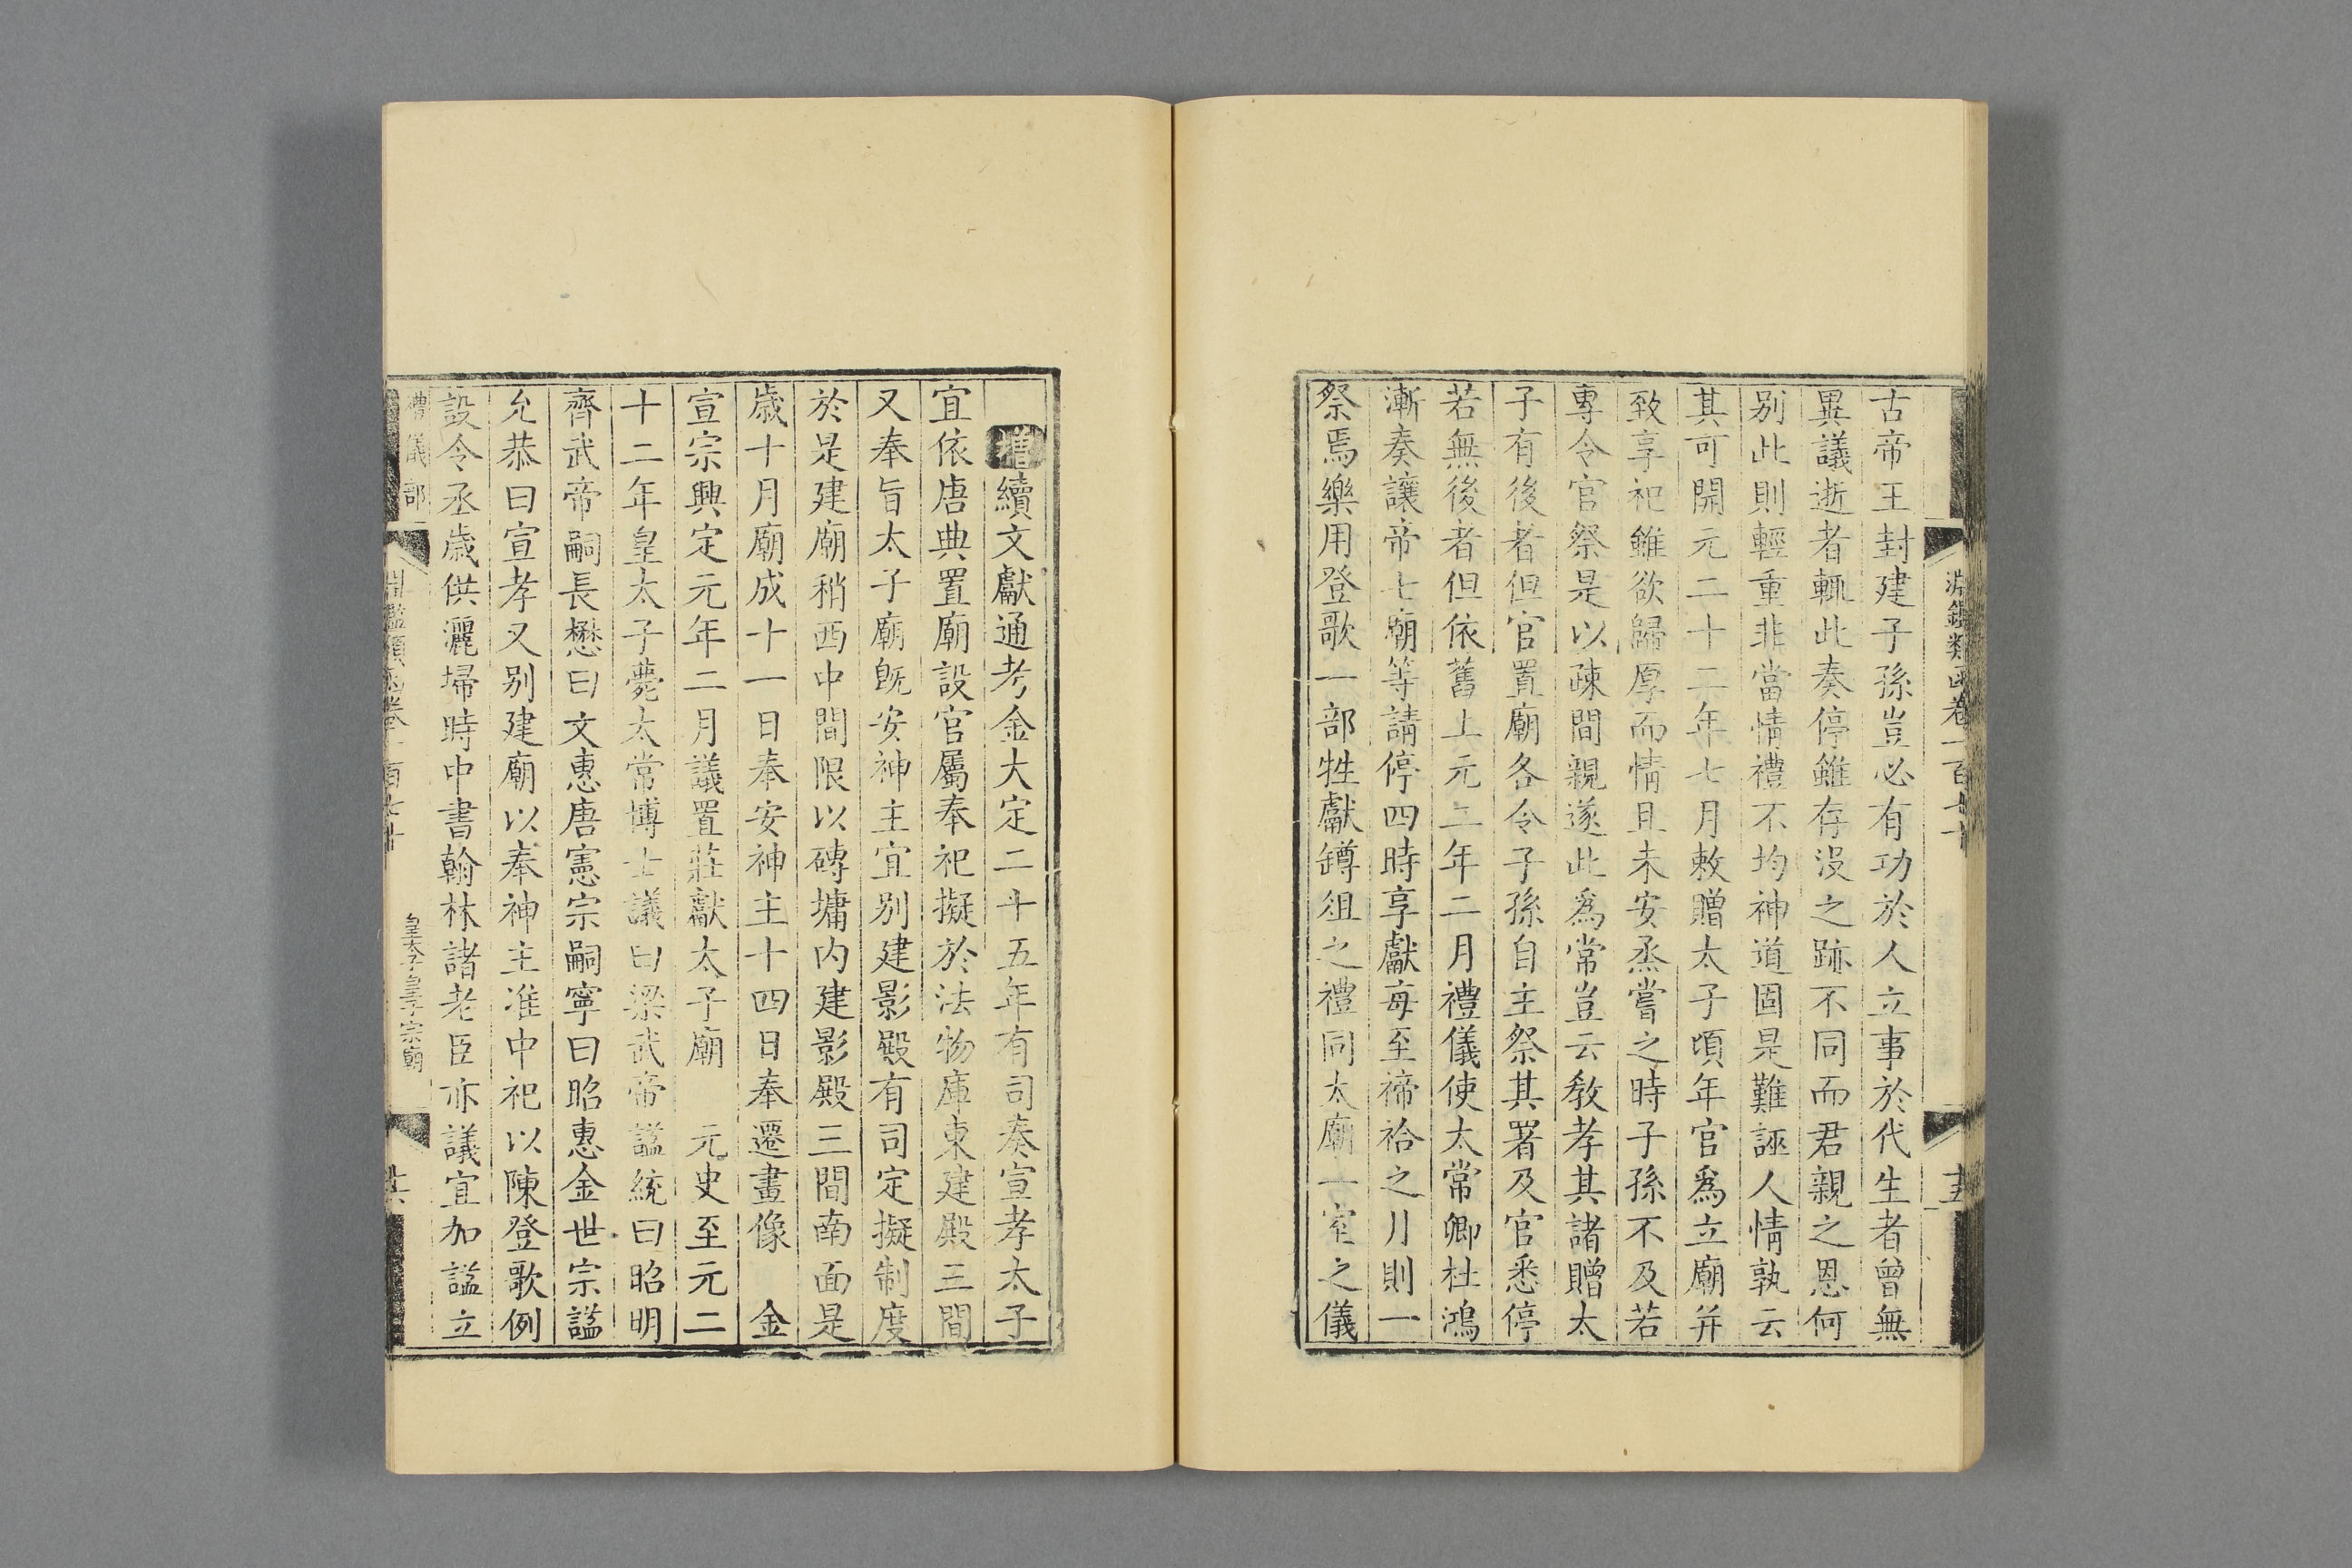 淵鑑類函卷一百七十
十五
古帝王封建子孫豈必有功於人立事於代生者曾無
異議逝者輒此奏停雖存沒之跡不同而君親之恩何
别此則輕重非當情禮不均神道固是難誣人情孰云
其可開元二十二年七月敕贈太子頃年官爲立廟并
致享祀雖欲歸厚而情且未安烝嘗之時子孫不及若
專令官祭是以疎間親遂此爲常豈云敎孝其諸贈太
子有後者但官置廟各令子孫自主祭其署及官悉停
若無後者但依舊上元二年二月禮儀使太常卿杜鴻
漸奏讓帝七廟等請停四時享獻每至禘祫之月則一
祭焉樂用登歌一部牲獻罇俎之禮同太廟一室之儀
增續文獻通考金大定二十五年有司奏宣孝太子
宜依唐典置廟設官屬奉祀擬於法物庫東建殿三間
又奉旨太子廟旣安神主宜别建影殿有司定擬制度
於是建廟稍西中間限以磚墉内建影殿三間南面是
歲十月廟成十一日奉安神主十四日奉遷畫像　金
宣宗興定元年二月議置莊獻太子廟　元史至元二
十二年皇太子薨太常博士議曰梁武帝諡統曰昭明
齊武帝嗣長懋曰文惠唐憲宗嗣寧曰昭惠金世宗諡
允恭曰宣孝又别建廟以奉神主准中祀以陳登歌例
設令丞歲供灑埽時中書翰林諸老臣亦議宜加諡立
禮儀部
淵鑑類函卷一百七十
皇太子皇子宗廟
十六